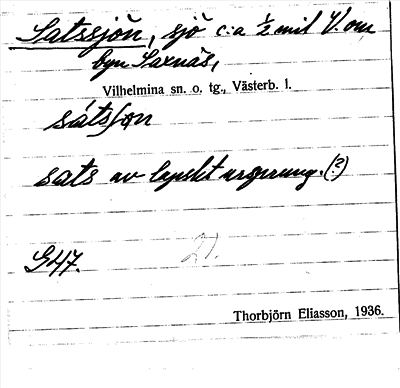 Satssjön, sjö c:a ½ mil V. om
byn Saxnäs,
Vilhelmina sn. o. tg., Västerb. l.
sats av lapskt ursprung. (?)
G47.
21.
Thorbjörn Eliasson, 1936.